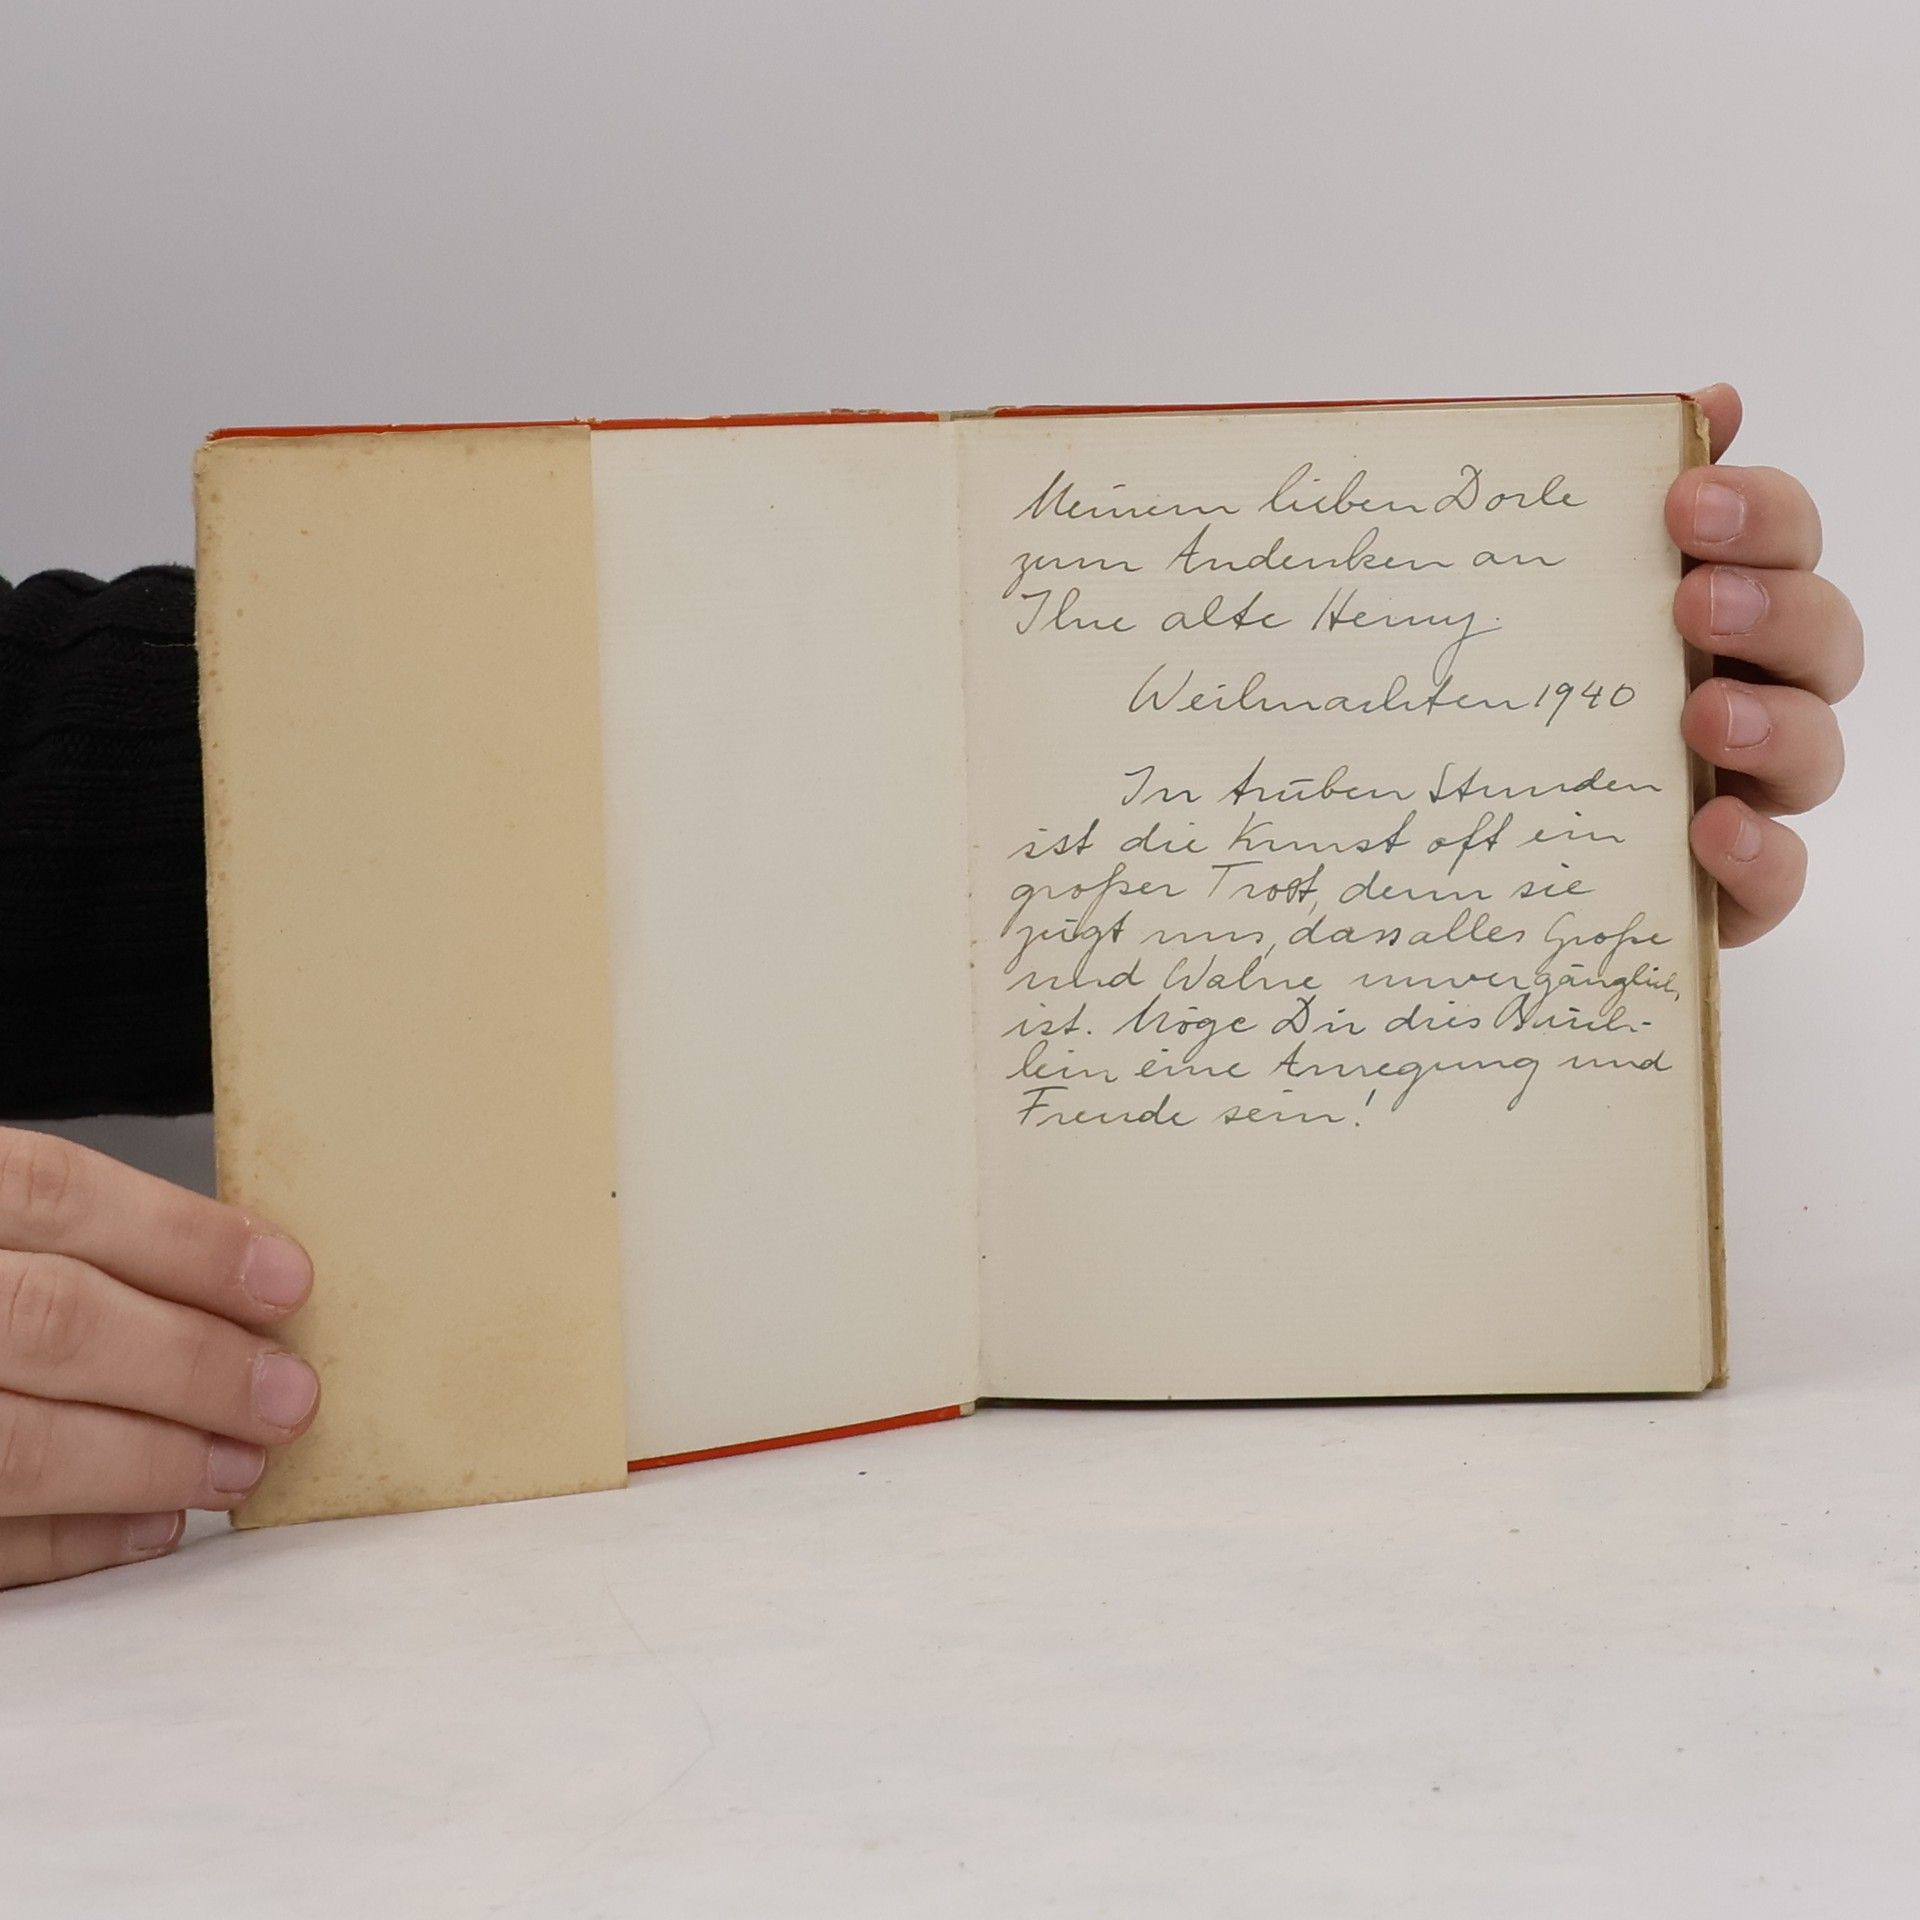 Meinem lieben Dorle
zum Andenken an
Ihre alte Henny.
Weihnachten 1940
In trüben Stunden
ist die Kunst oft ein
großer Trost, denn sie
zeigt uns, dass alles Große
und Wahre unvergänglich
ist. Möge Dir dies Büch-
lein eine Anregung und
Freude sein!